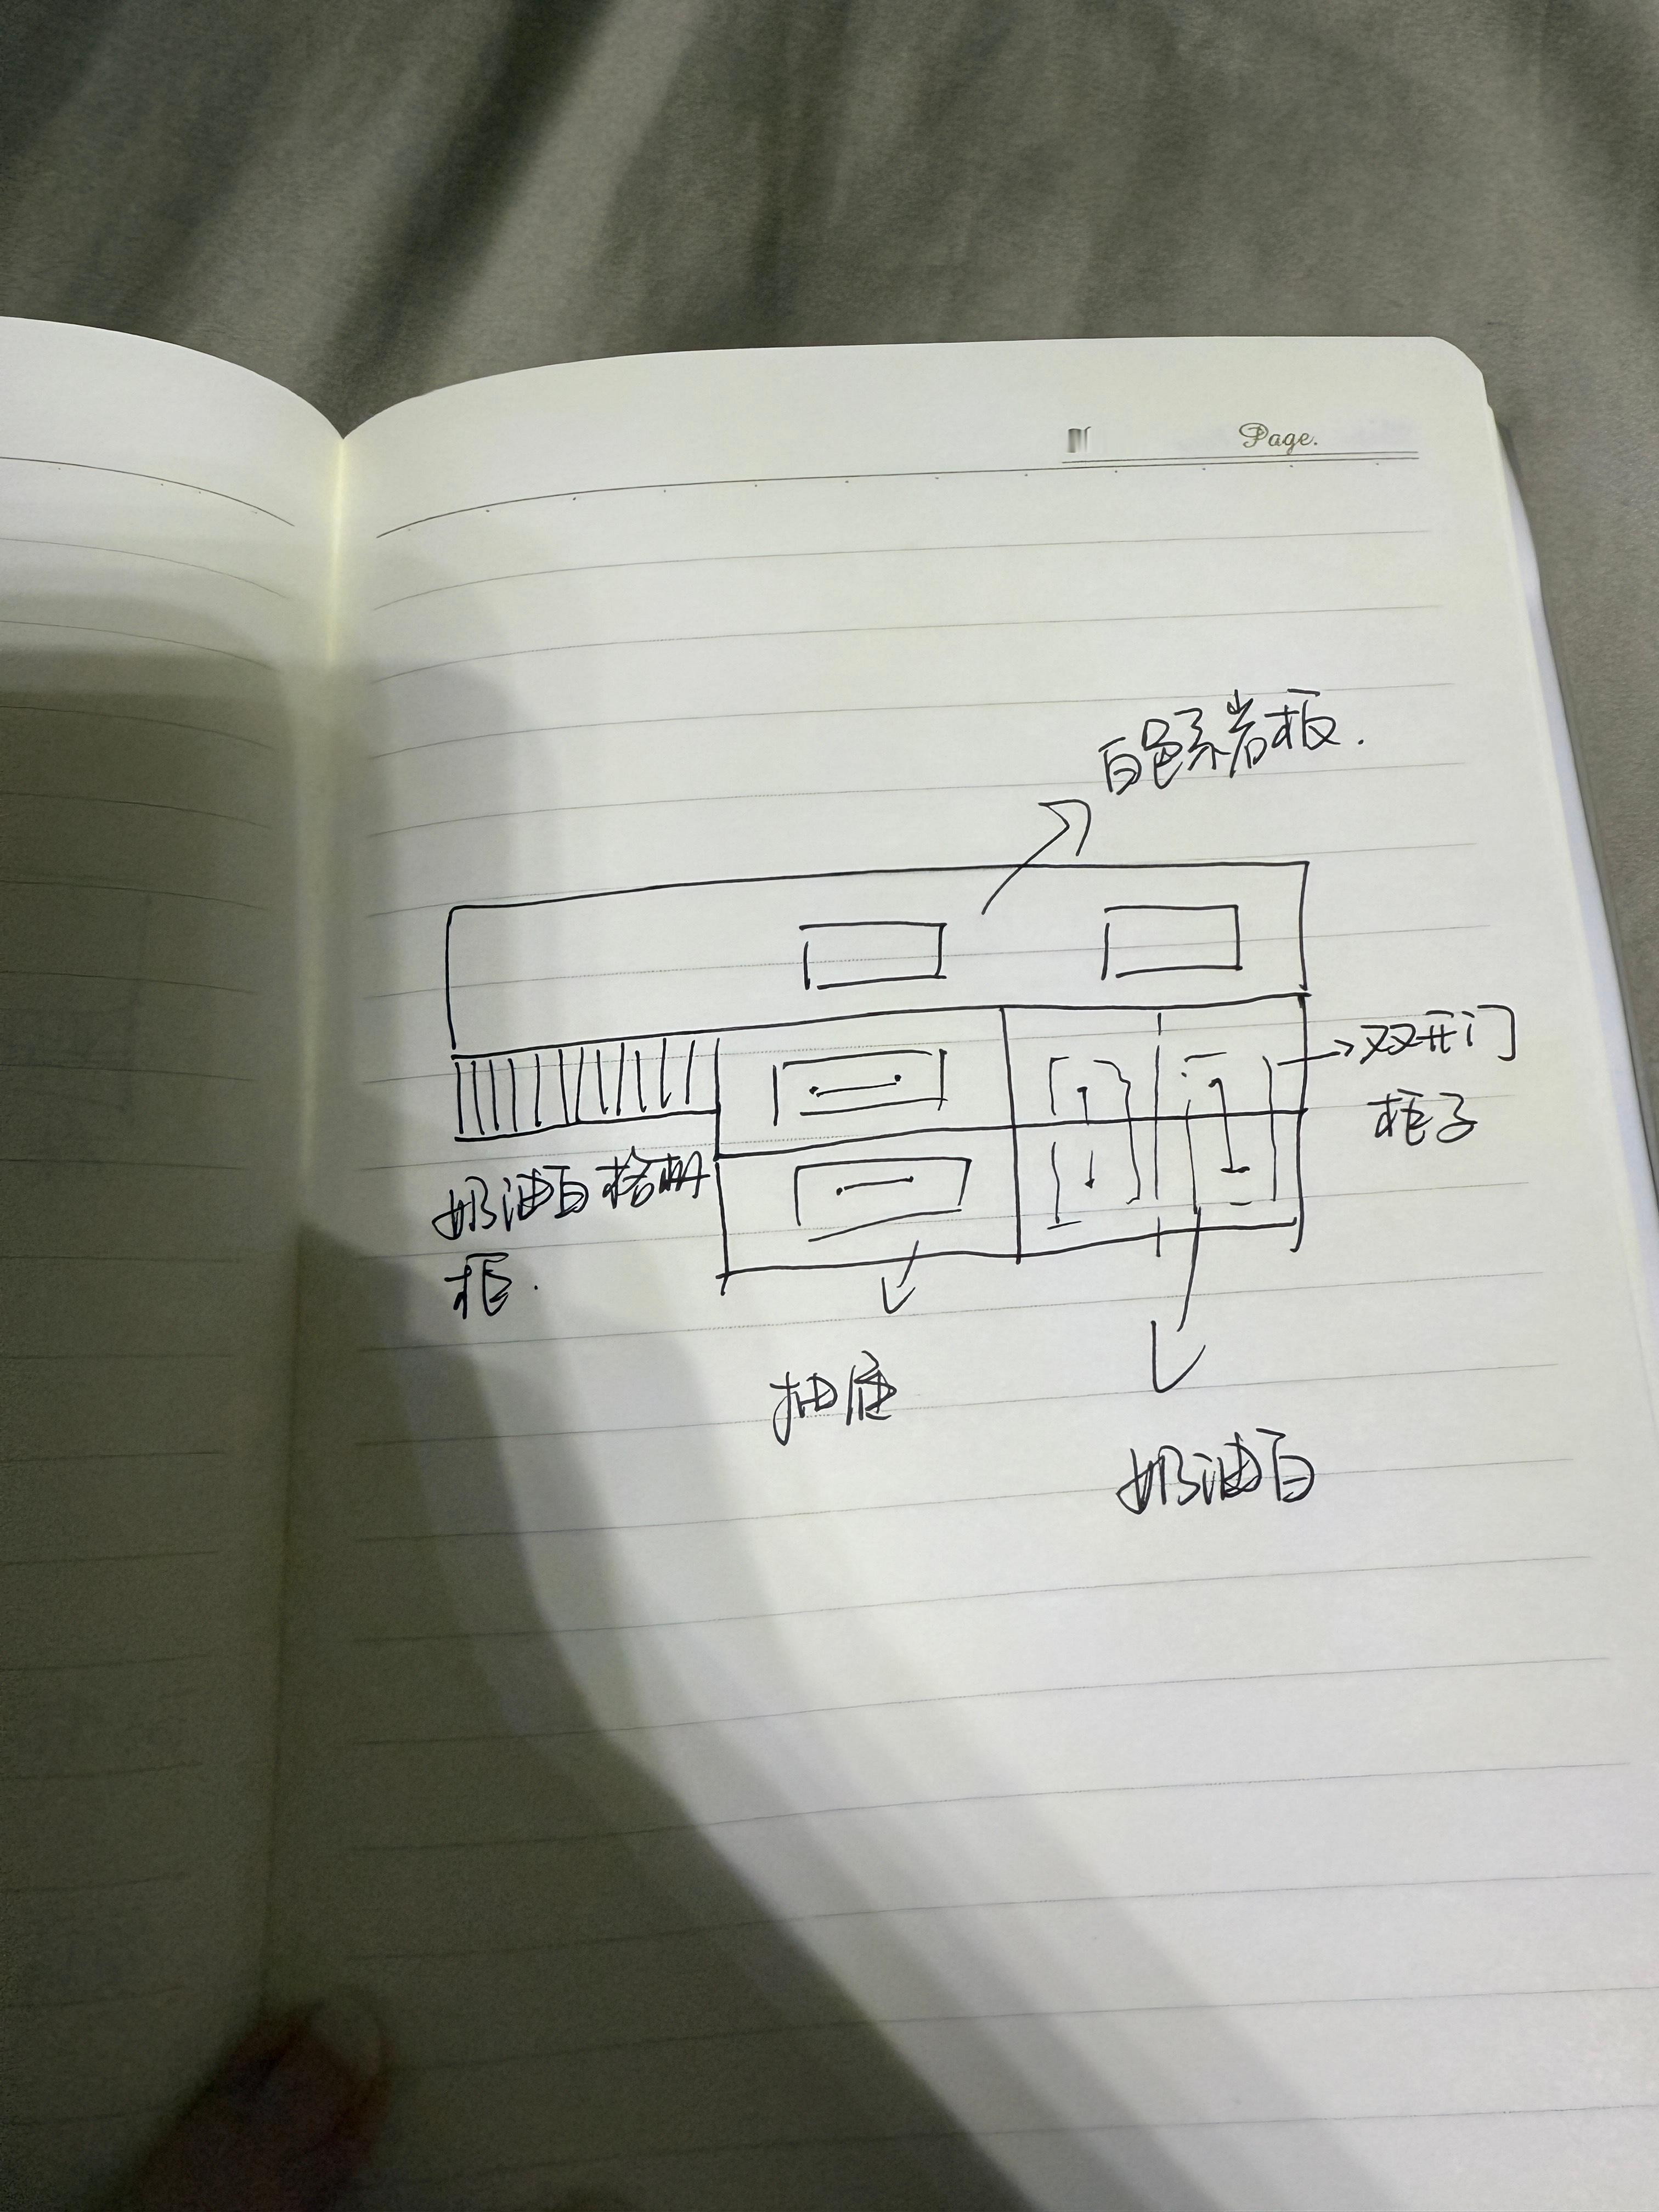 Page.
白色系岩板.
双开门
柜子
奶油白格栅
柜.
抽屉
奶油白